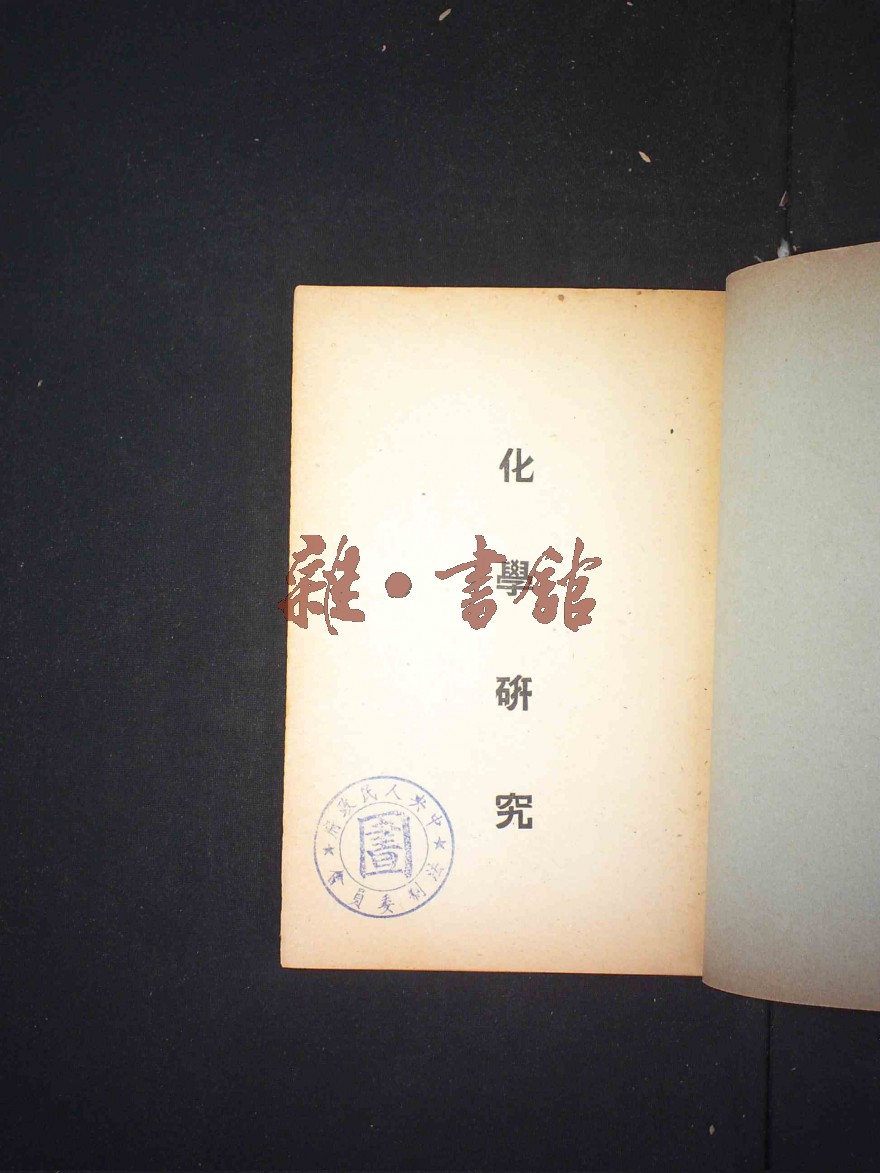 化學硏究
雜·書舘
中央人民政府
法制委員會
圕